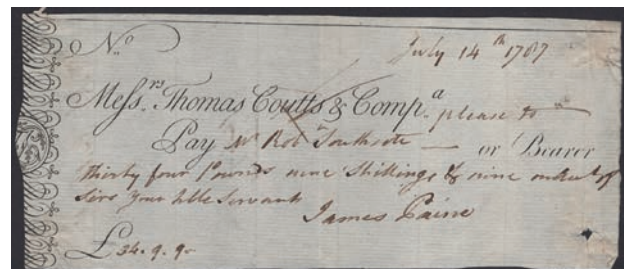 No July 14th 1787
Messrs. Thomas Coutts & Compa. please to
Pay Mr Robt Southcote or Bearer
thirty four Pounds nine Shillings & nine on Acct of
Sirs Your Hble Servant
James Paine
£34.9.9